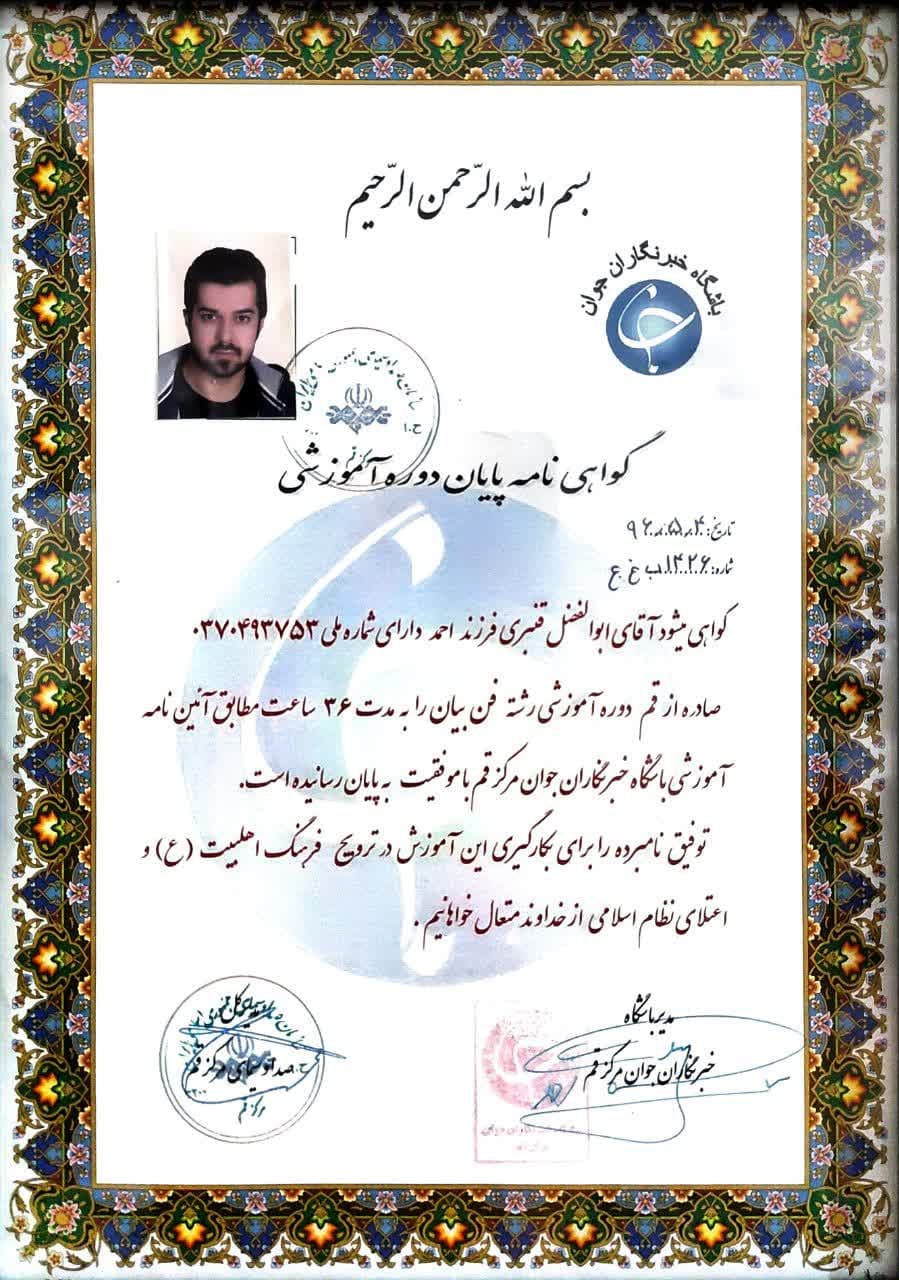 بسم الله الرّحمن الرّحیم
باشگاه خبرنگاران جوان
گواهی نامه پایان دوره آموزشی
تاریخ: ۹۶٫۵٫۴
شماره: ۱۴۲۶ ب غ ع
گواهی میشود آقای ابوالفضل قنبری فرزند احمد دارای شماره ملی ۰۳۷۰۴۹۳۷۵۳
صادره از قم دوره آموزشی رشته فن بیان را به مدت ۳۶ ساعت مطابق آئین نامه
آموزشی باشگاه خبرنگاران جوان مرکز قم با موفقیت به پایان رسانیده است.
توفیق نامبرده را برای بکارگیری این آموزش در ترویج فرهنگ اهلبیت (ع) و
اعتلای نظام اسلامی از خداوند متعال خواهانیم.
مدیر باشگاه
خبرنگاران جوان مرکز قم
مدیر کل
صدا و سیمای مرکز قم
مرکز قم